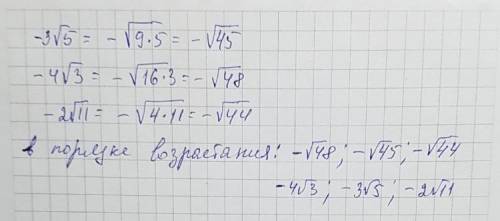 -3√5 = -√9·5 = -√45
-4√3 = -√16·3 = -√48
-2√11 = -√4·11 = -√44
в порядке возрастания: -√48; -√45; -√44
-4√3; -3√5; -2√11